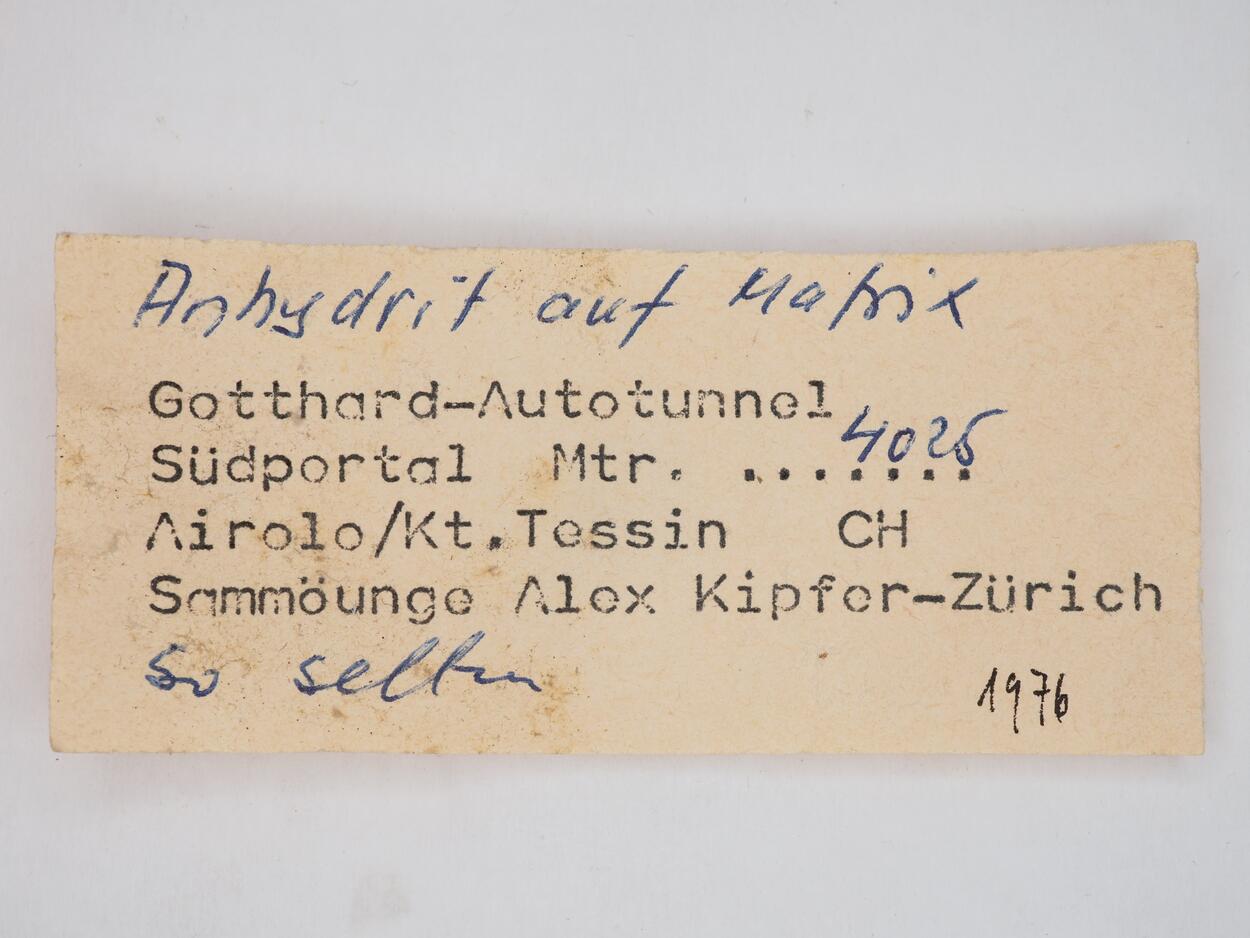 Anhydrit auf Matrix
Gotthard-Autotunnel
Südportal Mtr. ....... 4025
Airolo/Kt.Tessin CH
Sammöunge Alex Kipfer-Zürich
so selten
1976